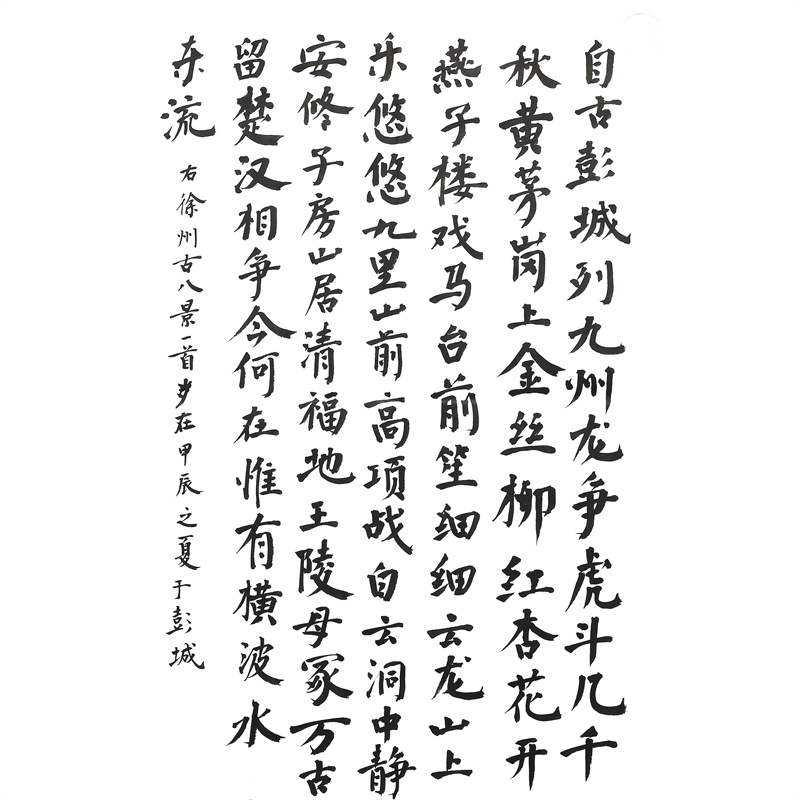 自古彭城列九州龙争虎斗几千
秋黄茅岗上金丝柳红杏花开
燕子楼戏马台前笙细细云龙山上
乐悠悠九里山前高项战白云洞中静
安修子房山居清福地王陵母冢万古
留楚汉相争今何在惟有横波水
东流
右徐州古八景一首岁在甲辰之夏于彭城